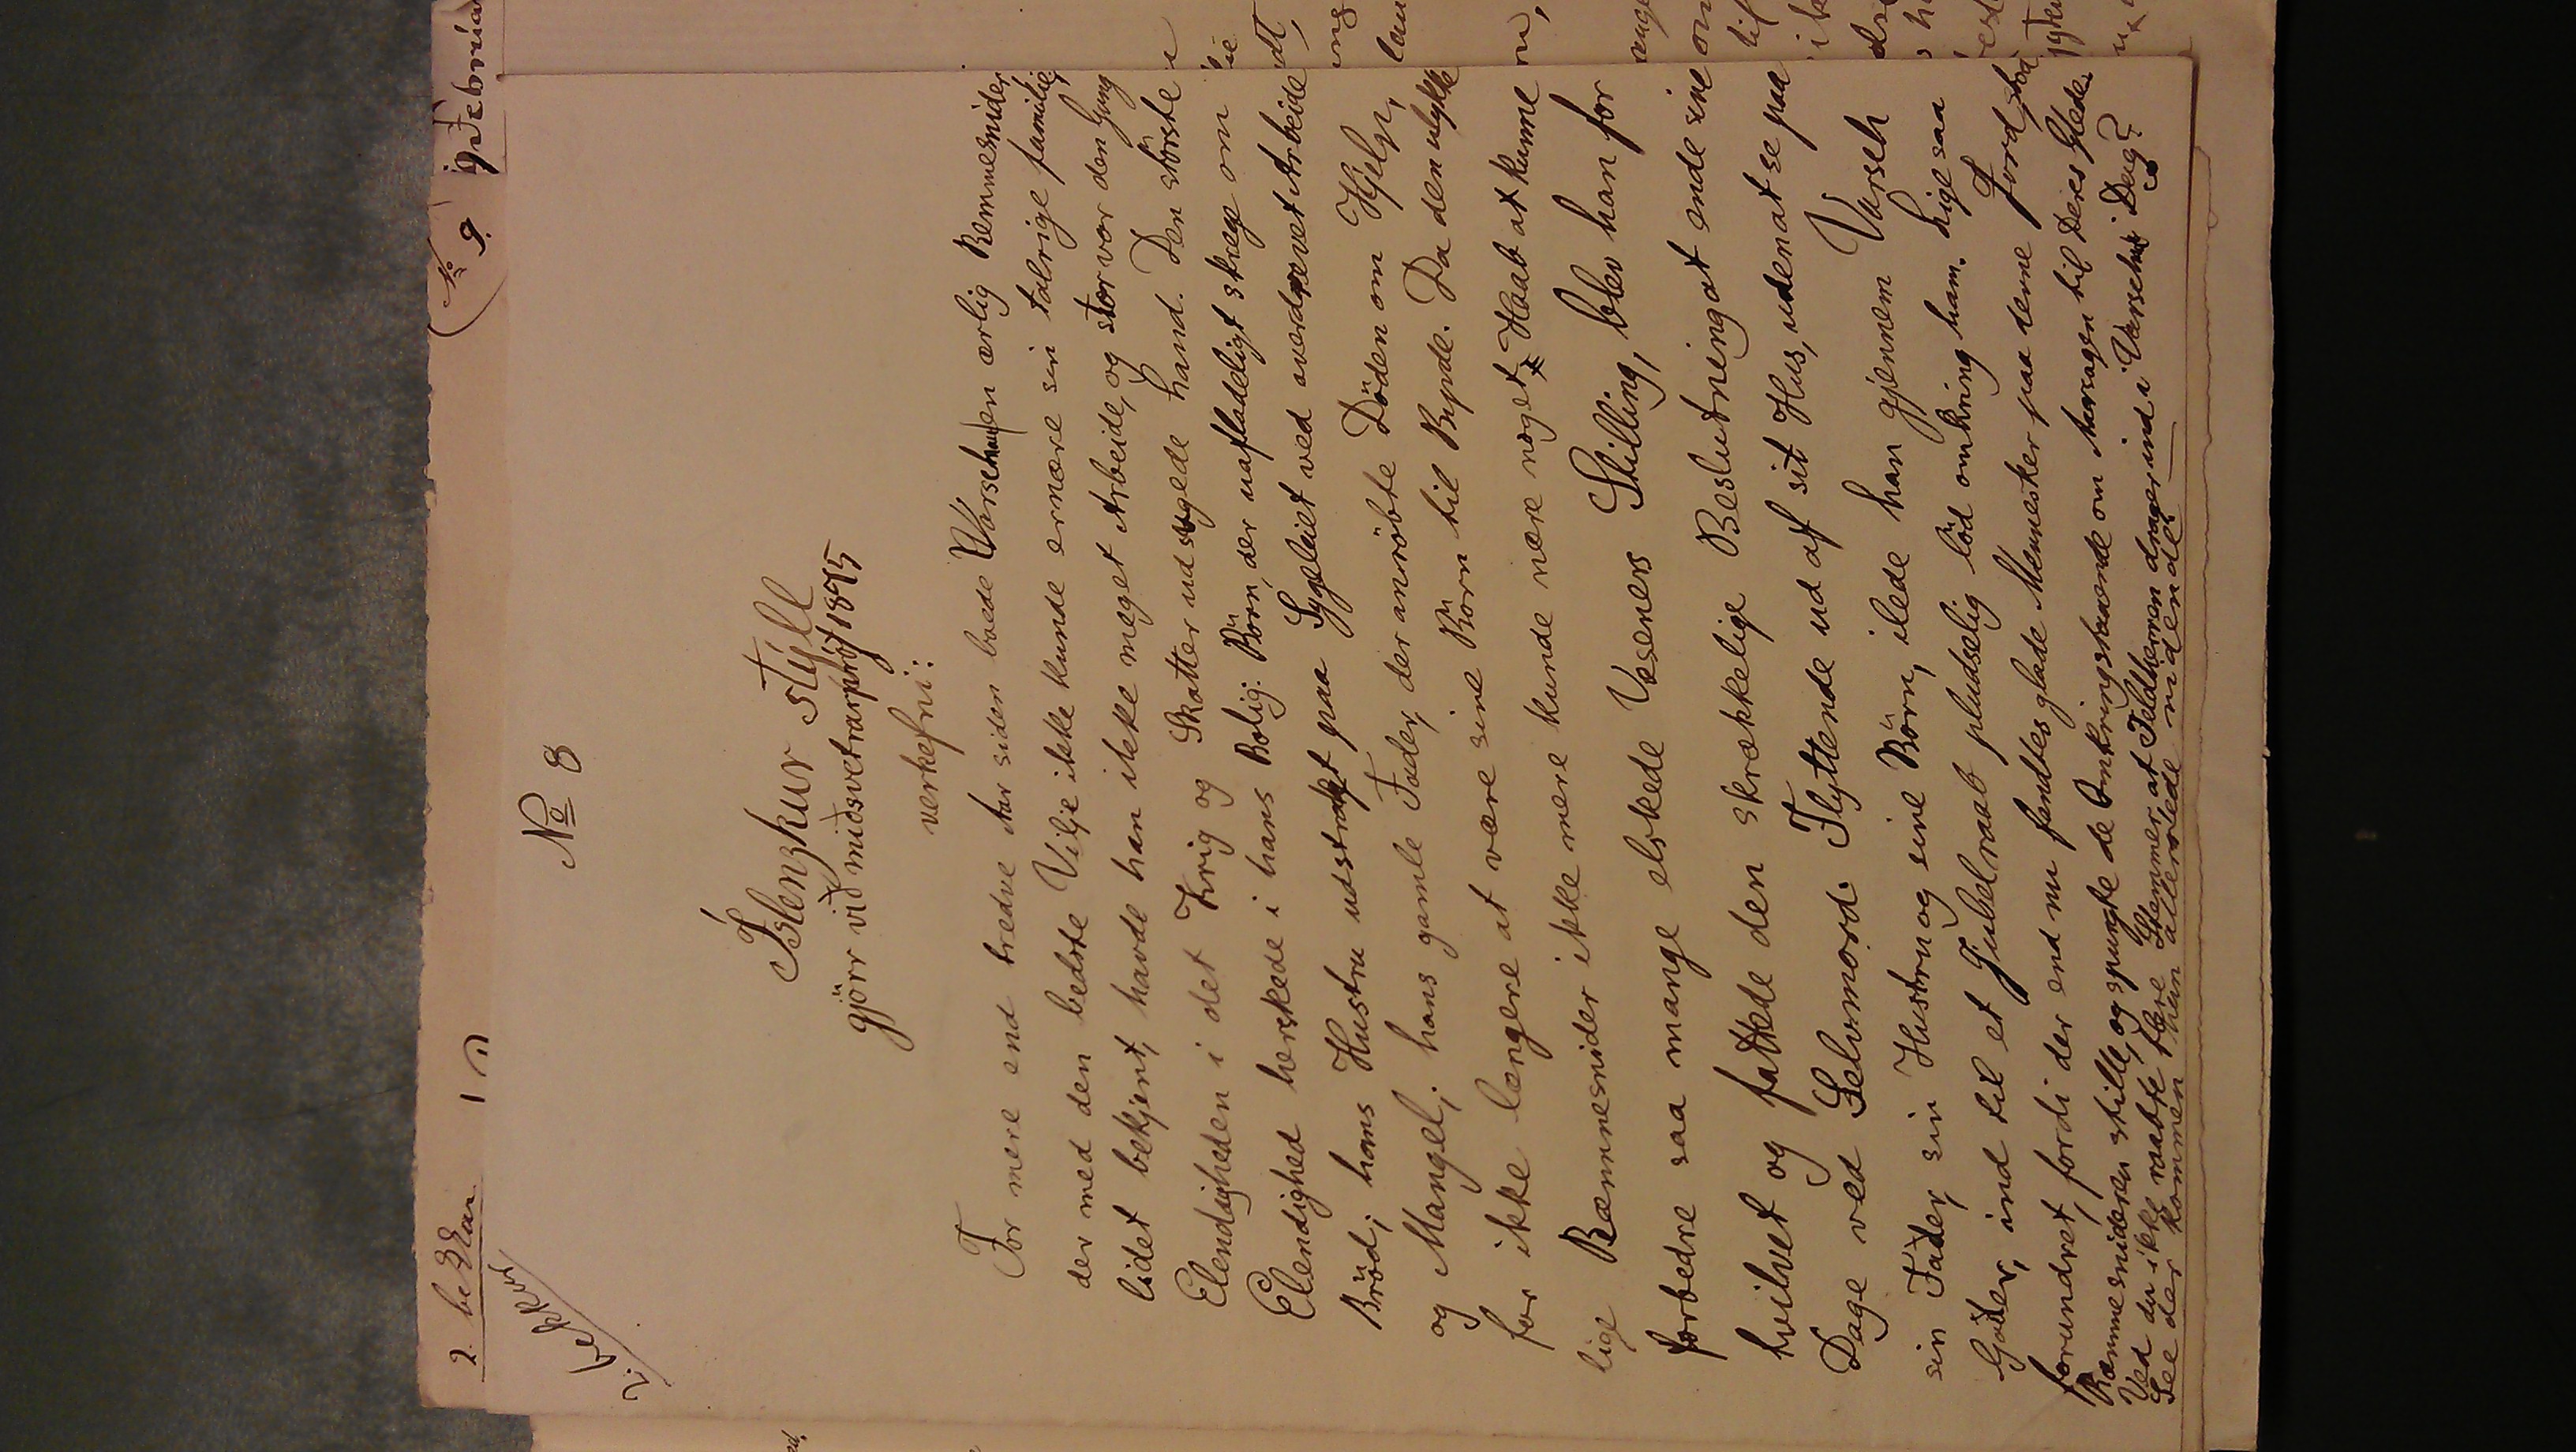 2. bekkur
No 9.
9 Febrúar
2. bekkur
No 8
Íslenzkur stýll
gjörr við miðsvetrarpróf 1875
verkefni:
For mere end tredve Aar siden boede Varschau en ærlig Remmesnider,
der med den bedste Vilje ikke kunde ernære sin talrige familie,
lidet bekjent, havde han ikke meget Arbeide, og stor var den Gang
Elendigheden i det Krig og Skatter udsugede hand. Den störste
Elendighed herskede i hans Bolig: Börn, der uafladeligt skrege om
Bröd; hans Hustru udstrakt paa Sygeleiet ved overdrevet Arbeide
og Mangel; hans gamle Fader, der anröbte Döden om Hjelp,
for ikke længere at være sine Börn til Byrde. Da den ulykke
lige Ræmmesnider ikke mere kunde nære noget Haab at kunne
forbedre saa mange elskede Væsners Stilling, blev han for
tvilvet og fattede den skrækkelige Beslutning at ende sine
Dage ved Selvmord. Flyttende ud af sit Hus, uden at se paa
sin Fader, sin Hustru og sine Börn, ilede han gjennem Varsch
Gader, ind til et Jubelraab pludselig löd omkring ham. hige saa
forundret, fordi der end nu fandtes glade Mennesker paa denne Jord, stod
Ræmmesnideren stille, og spurgte de Omkringstaaende om Aarsagen til Deres Glede.
Ved du ikke raabte flere Stemmer at Feldherren drager ind i Varschau i Dag?
See der kommen han allerede m den der